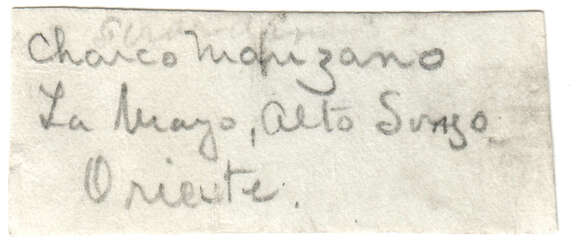 Charco Manzano
La Maya, Alto Songo
Oriente.